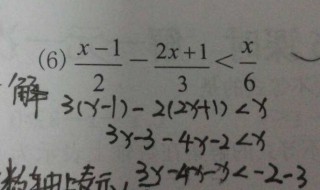 (6) \frac{x-1}{2} - \frac{2x+1}{3} < \frac{x}{6}
解 3(x-1)-2(2x+1)<x
3x-3-4x-2<x
数轴上表示, 3x-4x-x<-2-3